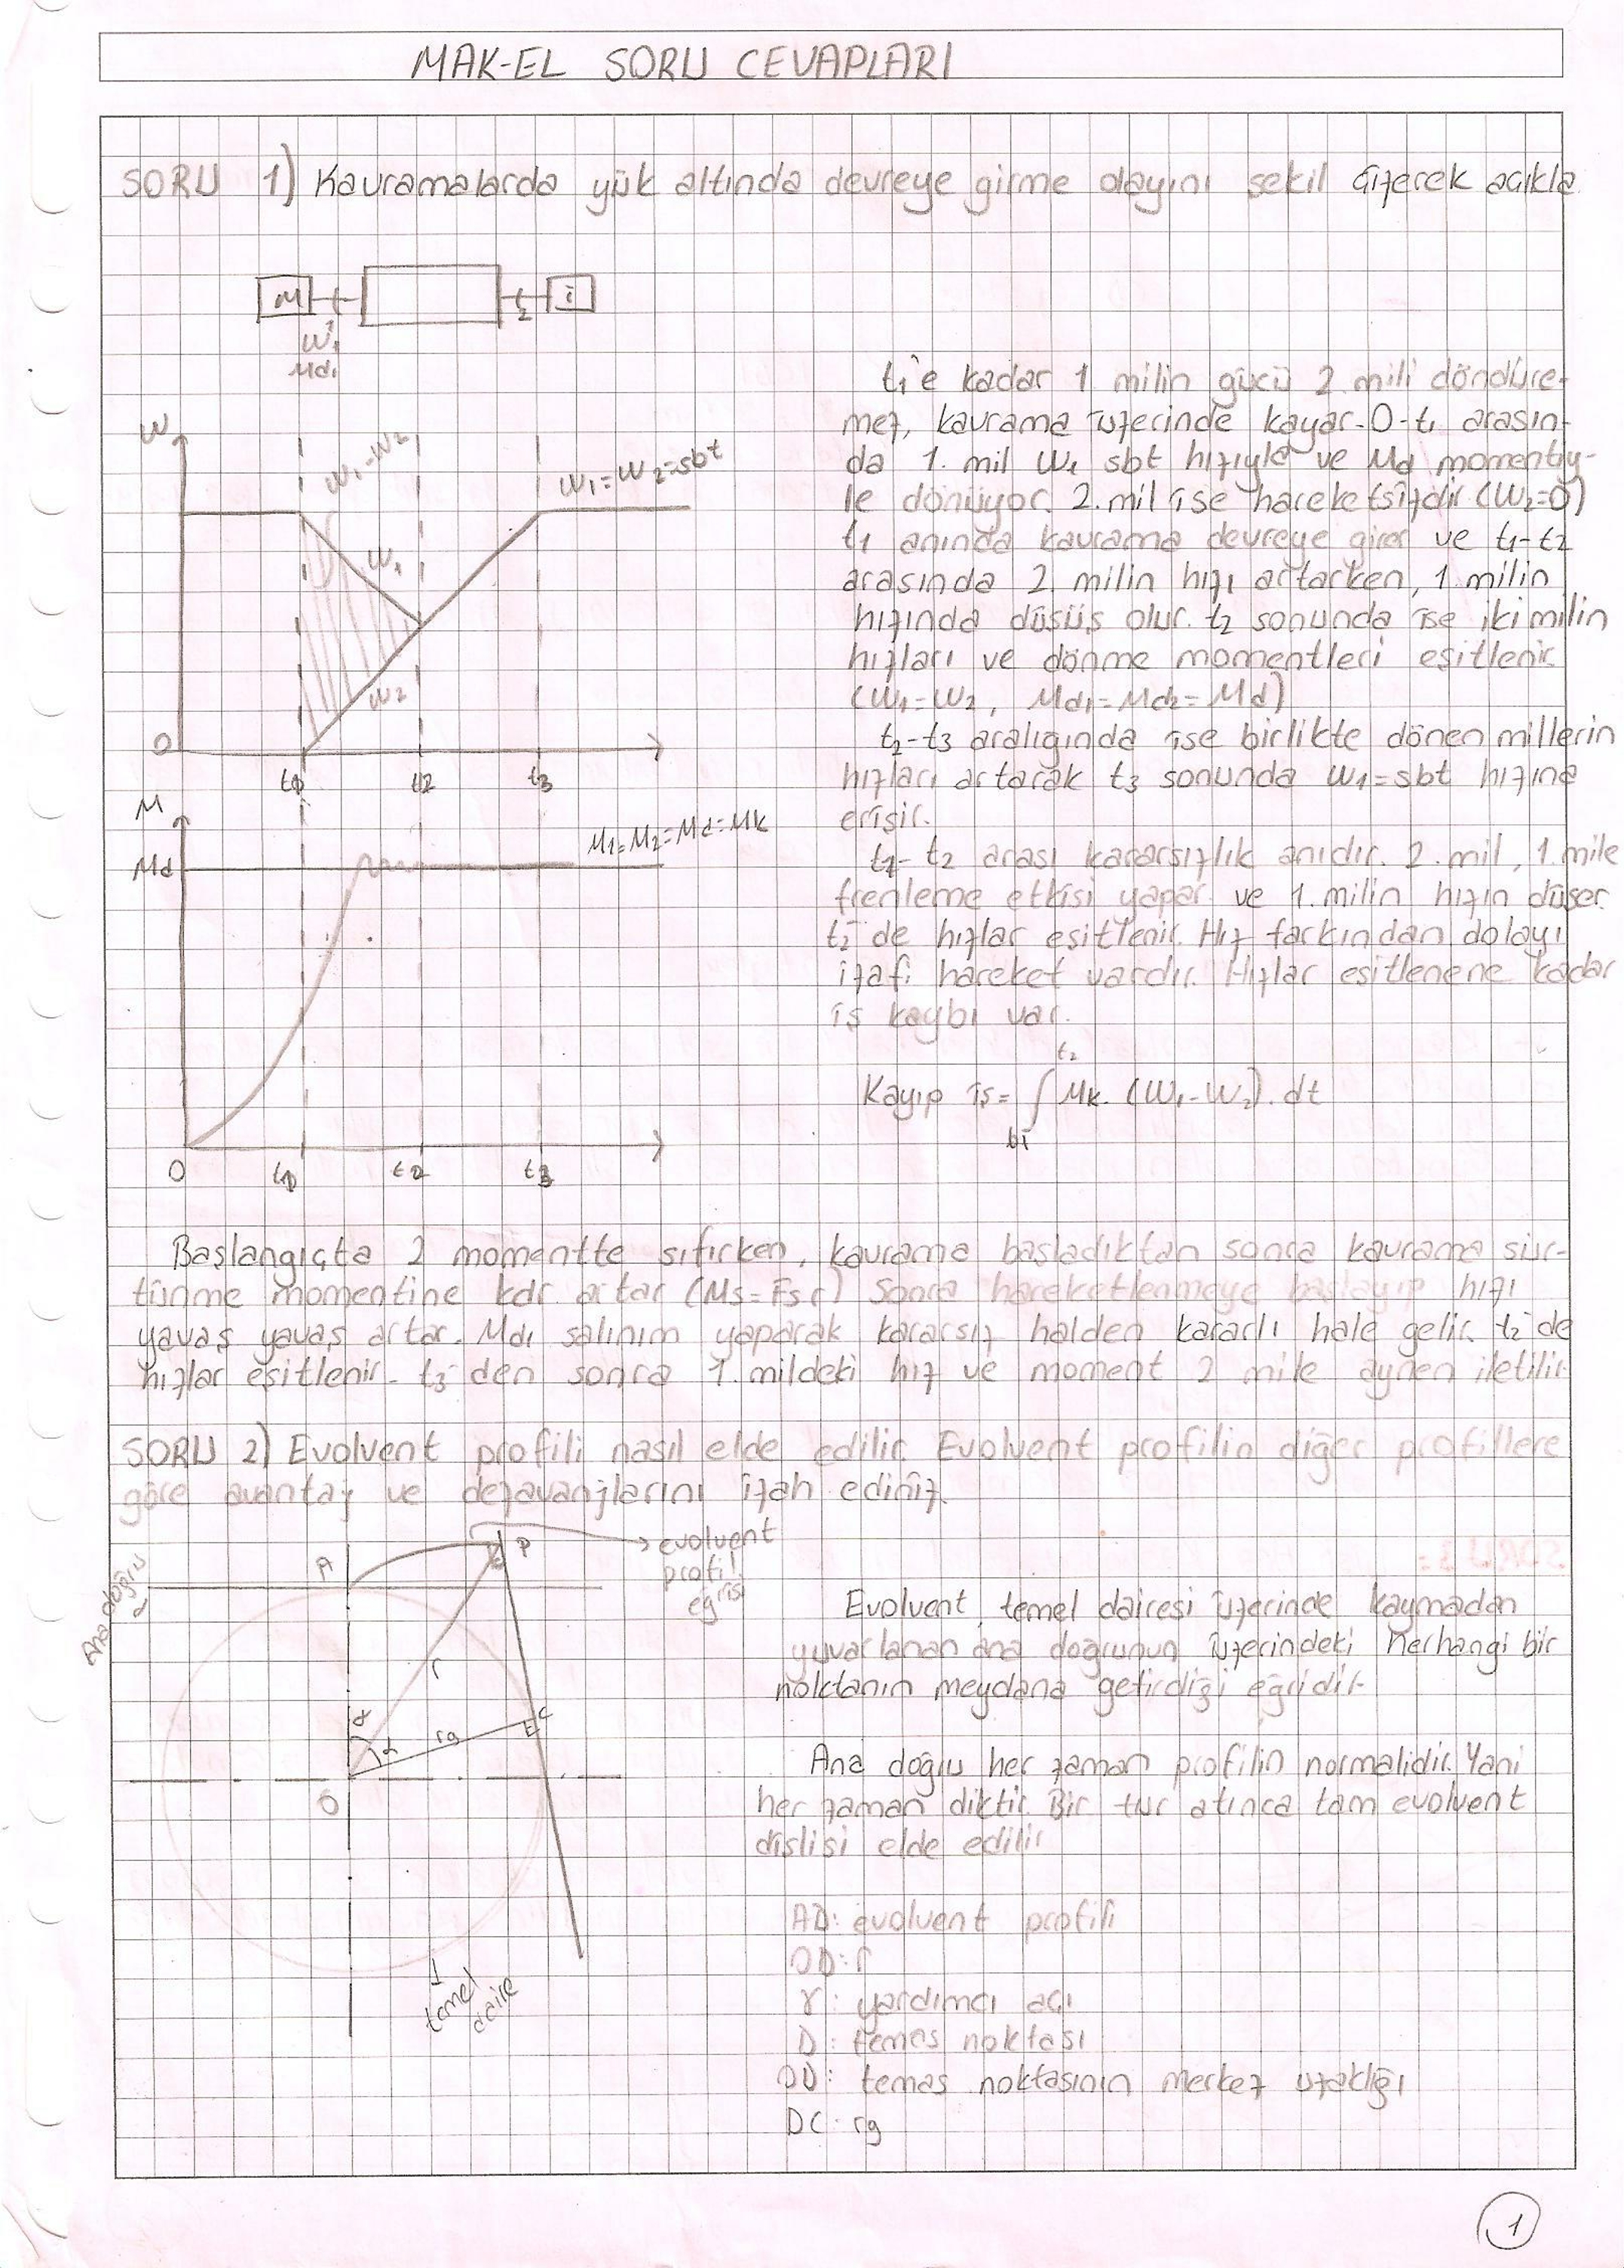 MAK-EL SORU CEVAPLARI
SORU 1) Kavramalarda yük altında devreye girme olayını şekil çizerek açıkla.
M
İ
1
2
W1
Md1
W
W1-W2
W1=W2=sbt
W1
W2
0
t1
t2
t3
M
Md
M1=M2=Md=Mk
0
t1
t2
t3
t1'e kadar 1 milin gücü 2. mili döndüre-
mez, kavrama üzerinde kayar. 0-t1 arasın-
da 1. mil W1 sbt hızıyla ve Md momentiy-
le dönüyor. 2. mil ise hareketsizdir (W2=0)
t1 anında kavrama devreye girer ve t1-t2
arasında 2. milin hızı artarken, 1. milin
hızında düşüş olur. t2 sonunda ise iki milin
hızları ve dönme momentleri eşitlenir.
(W1=W2, Md1=Md2=Md)
t2-t3 aralığında ise birlikte dönen millerin
hızları artarak t3 sonunda W1=sbt hızına
erişir.
t1-t2 arası kararsızlık anıdır. 2. mil, 1. mile
frenleme etkisi yapar ve 1. milin hızın düşer.
t2'de hızlar eşitlenir. Hız farkından dolayı
izafi hareket vardır. Hızlar eşitlenene kadar
iş kaybı var.
Kayıp iş= ∫ Mk. (W1-W2). dt
t2
Başlangıçta 2 momentte sıfırken, kavrama başladıktan sonra kavrama sür-
tünme momentine kdr. artar (Ms=Fs.r) Sonra hareketlenmeye başlayıp hızı
yavaş yavaş artar. Md1 salınım yaparak kararsız halden kararlı hale gelir. t2'de
hızlar eşitlenir. t3'den sonra 1. mildeki hız ve moment 2 mile aynen iletilir.
SORU 2) Evolvent profili nasıl elde edilir. Evolvent profilin diğer profillere
göre avantaj ve dezavanjlarını izah ediniz.
Ana doğru
A
D
evolvent
profil
eğrisi
r
γ
α
rg
C
0
temel
daire
Evolvent, temel dairesi üzerinde kaymadan
yuvarlanan ana doğrunun üzerindeki herhangi bir
noktanın meydana getirdiği eğridir.
Ana doğru her zaman profilin normalidir. Yani
her zaman diktir. Bir tur atınca tam evolvent
dişlisi elde edilir
AD: evolvent profili
OD: r
γ: yardımcı açı
D: temas noktası
OD: temas noktasının merkez uzaklığı
DC: rg
1